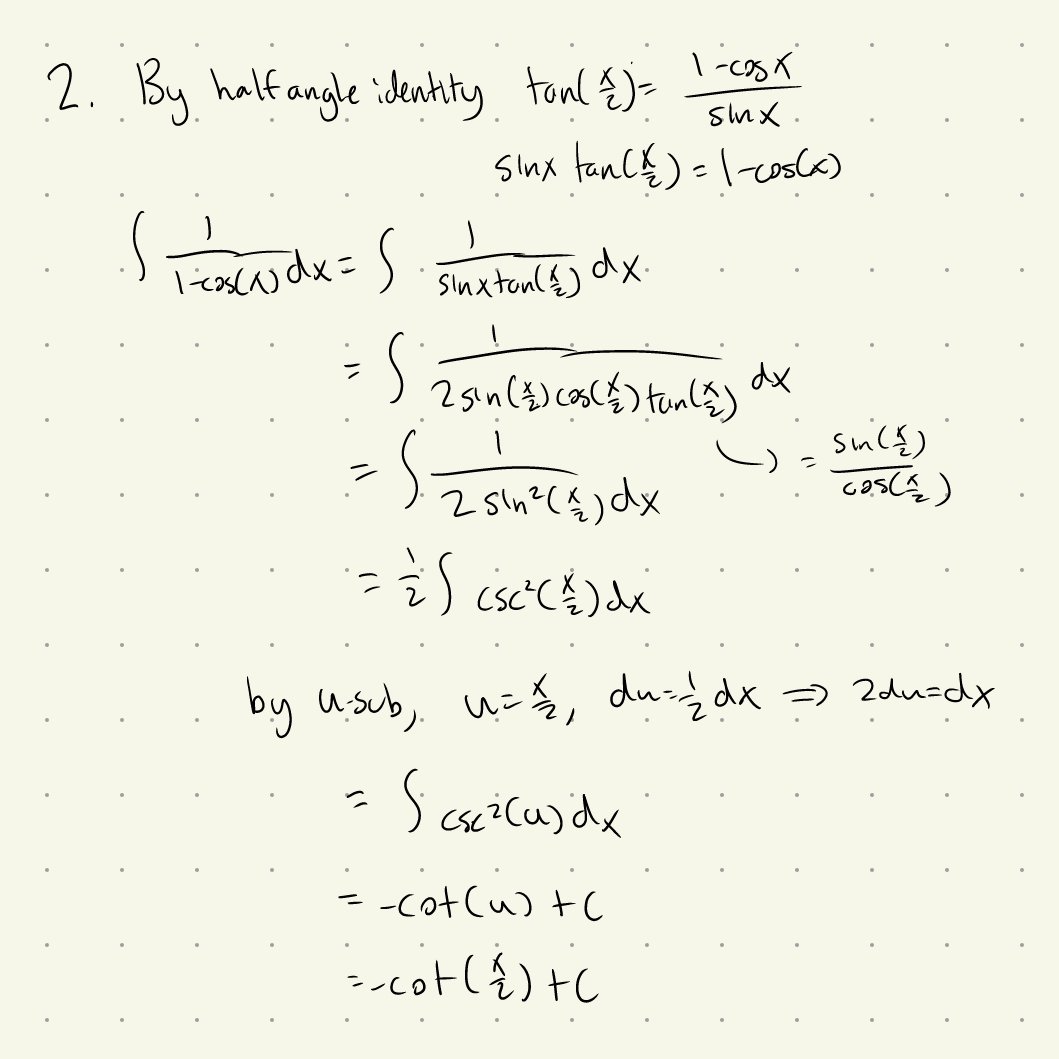 2. By half angle identity tan(x/2) = (1-cosx)/(sinx)
sinx tan(x/2) = 1-cos(x)
∫ 1/(1-cos(x)) dx = ∫ 1/(sinxtan(x/2)) dx
= ∫ 1/(2sin(x/2)cos(x/2)tan(x/2)) dx
= ∫ 1/(2sin²(x/2)) dx ↪ = sin(x/2)/cos(x/2)
= 1/2 ∫ csc²(x/2)dx
by u-sub, u=x/2, du=1/2 dx ⇒ 2du=dx
= ∫ csc²(u)dx
= -cot(u)+C
= -cot(x/2)+C